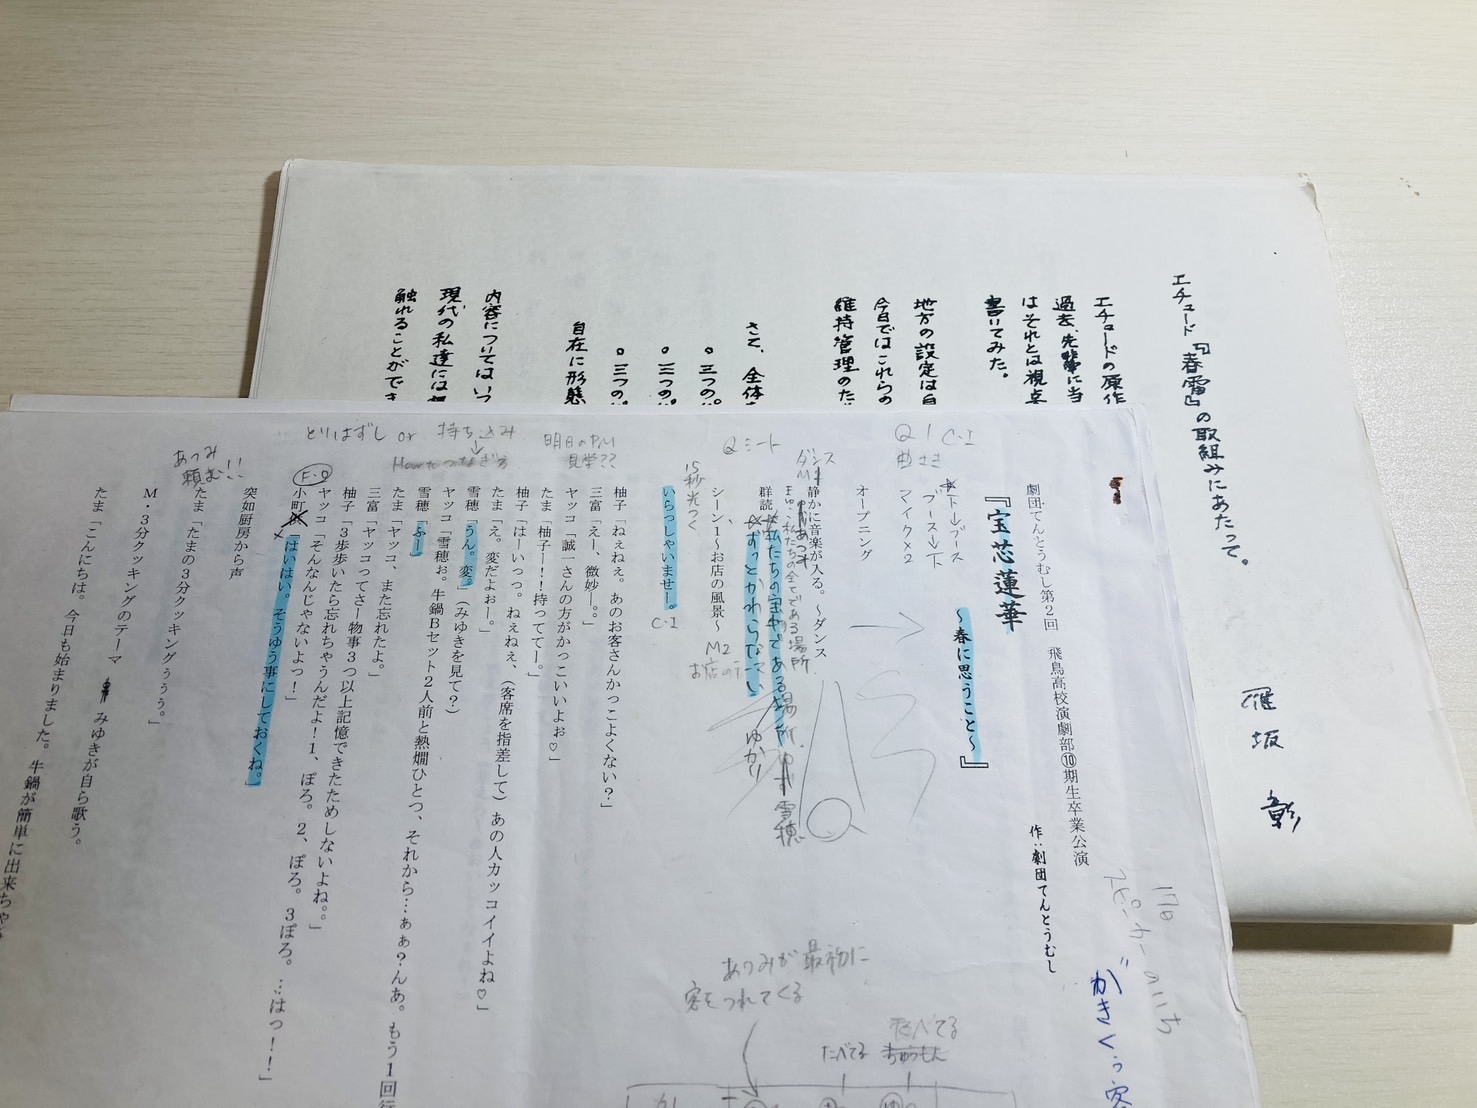 エチュード『春雷』の取組みにあたって。
雁坂 彰
エチュードの原作
過去、先輩に当
はそれとは視点
書いてみた。
地方の設定は自
今日ではこれらの
維持管理のた
さて、全体
○三つの
○三つの
○三つの
自在に形態
内容についてはいつ
現代の私達には
触れることができ
劇団てんとうむし第2回 飛鳥高校演劇部⑩期生卒業公演
『宝芯蓮華 ～春に思うこと～』
作:劇団てんとうむし
Q1 C·I
下→ブース
ブース→下
マイク×2
オープニング
ダンス
静かに音楽が入る。～ダンス
私たちの全てである場所
雪穂
群読
ずっとかわらない
ゆかり
Qシート
シーン1～お店の風景～
M2
15秒光つく
いらっしゃいませー。
C·I
明日の
見学??
柚子「ねぇねぇ。あのお客さんかっこよくない?」
三富「えー、微妙ー。。」
ヤッコ「誠一さんの方がかっこいいよぉ♡」
たま「柚子ー!!!持っててー。」
柚子「はーいっっ。ねぇねぇ、(客席を指差して)あの人カッコイイよね♡」
たま「え。変だよぉー。」
雪穂「うん。変。」(みゆきを見て?)
ヤッコ「雪穂ぉ。牛鍋Bセット2人前と熱燗ひとつ、それから…ぁぁ?んあ。もう1回
雪穂「ふー
たま「ヤッコ、また忘れたよ。」
三富「ヤッコってさー物事3つ以上記憶できたためしないよね。。」
柚子「3歩歩いたら忘れちゃうんだよ!1、ぽろ。2、ぽろ。3ぽろ。…はっ!!」
ヤッコ「そんなんじゃないよっ!」
小町「はいはい。そうゆう事にしておくね。」
とりはずし or 持ち込み
F·O
突如厨房から声
あつみ
頼む!!
たま「たまの3分クッキングぅぅ。」
M・3分クッキングのテーマ みゆきが自ら歌う。
たま「こんにちは。今日も始まりました。牛鍋が簡単に出来ちゃ
スピーカーのいち
がきくぅ
あつみが最初に
客をつれてくる
たべてる
たべてる
ちゅうもん